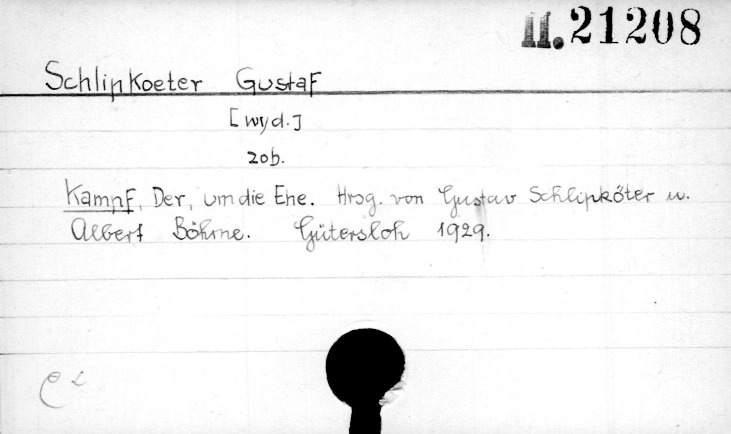 II. 21208
Schlipkoeter Gustaf
[wyd.]
zob.
Kampf, Der, um die Ehe. Hrsg. von Gustav Schlipköter u.
Albert Böhme. Gütersloh 1929.